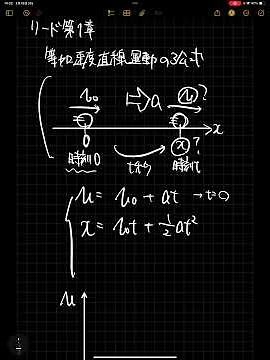 リード第1章
等加速度直線運動の3公式
v₀ ⇒a v?
0 x? x
時刻0 t秒後 時刻t
v = v₀ + at → t=0
x = v₀t + 1/2 at²
v